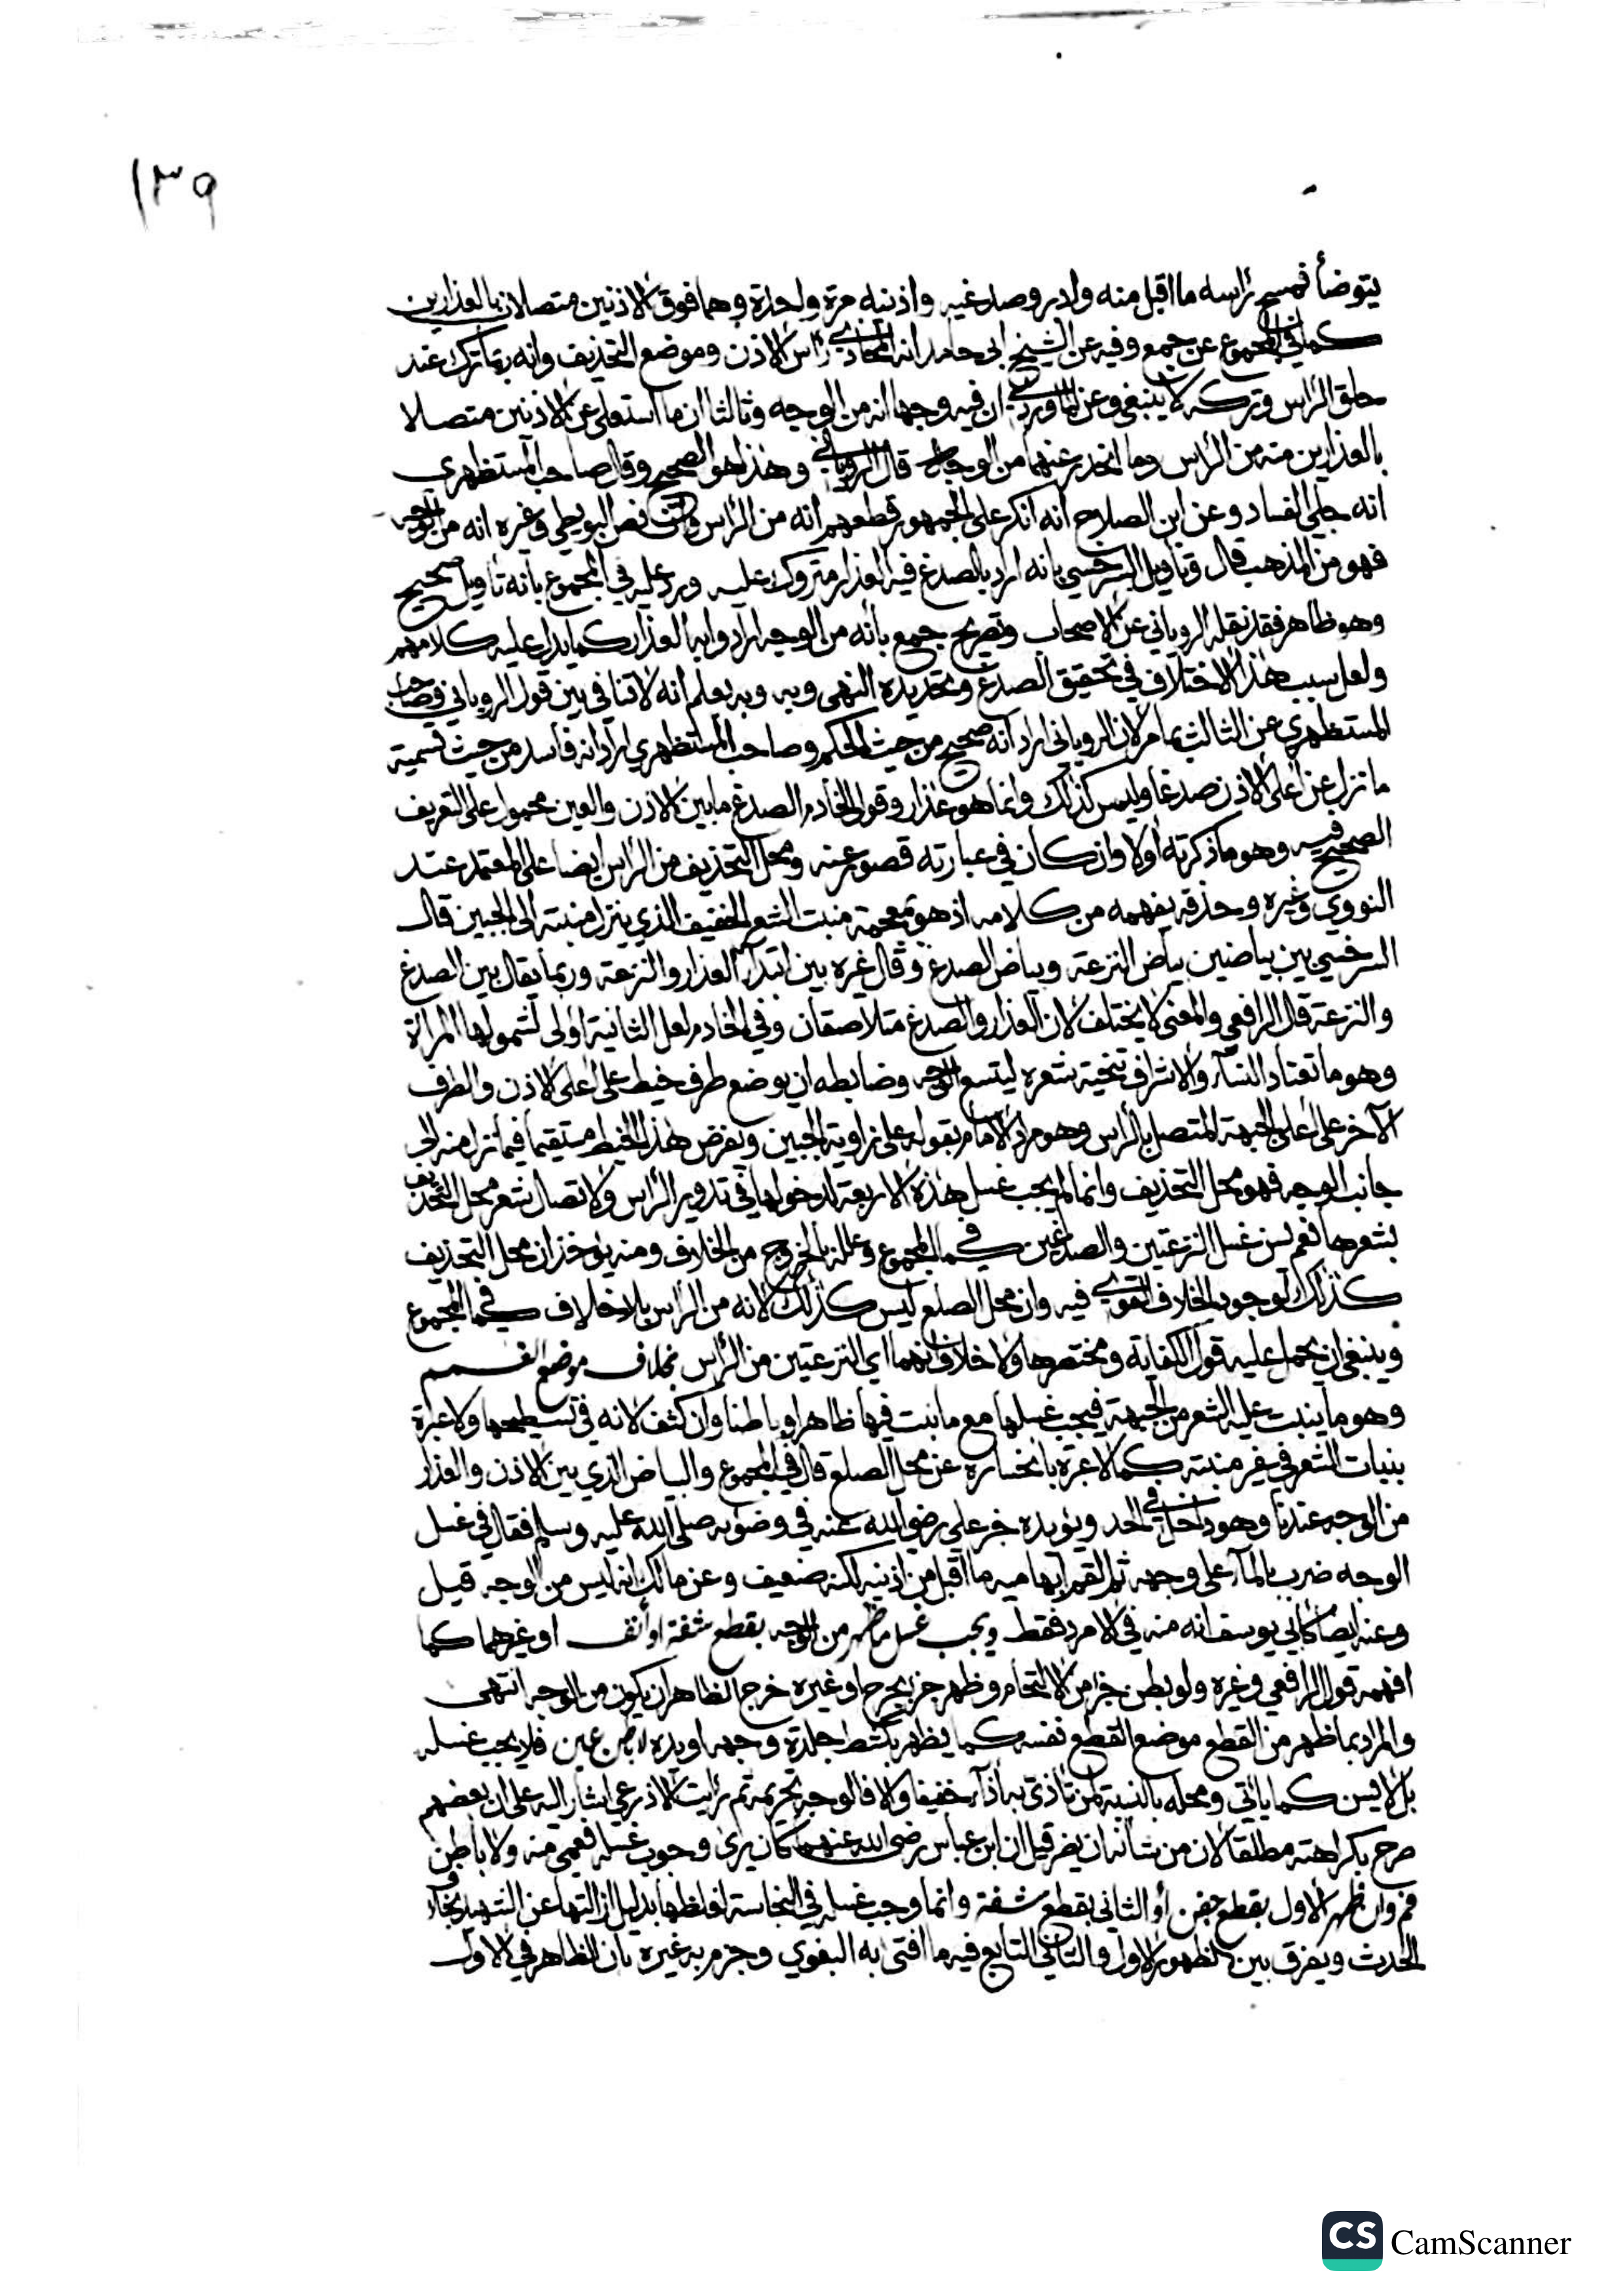 ١٣٩
يتوضأ فمسح برأسه ما اقبل منه وادبر وصدغيه واذنيه مرة واحدة وهما فوق الاذنين متصلان بالعذارين
كما في المجموع عن جمع وفيه عن الشيخ ابي حامد انه المحاذي رأس الاذن وموضع التحذيف وانه ربما ترك عند
حلق الرأس وتركه لا ينبغي وعن الماوردي ان فيه وجها انه من الوجه وثالثا ان ما استعلى عن الاذنين متصلا
بالعذارين منه من الرأس وما انحدر عنهما من الوجه قال الروياني وهذا هو الصحيح وقال صاحب المستظهري
انه جلي الفساد وعن ابن الصلاح انه انكر على الجمهور قطعهم انه من الرأس نص البويطي وغيره انه من الوجه
فهو من المذهب قال وتأويل السرخسي بانه اراد بالصدغ فيه العذار متروك عليه ورد عليه في المجموع بانه تأويل صحيح
وهو ظاهر فقد نقله الروياني عن الاصحاب وتصريح جمع بأنه من الوجه ارادوا به العذار كما يدل عليه كلامهم
ولعل سبب هذا الاختلاف في تحقيق الصدغ وتحديده انتهى وبه يعلم انه لا تنافي بين قول الروياني وصاحب
المستظهري عن الثالث ما مر لان الروياني اراد انه صحيح من حيث الحكم وصاحب المستظهري اراد انه فاسد من حيث تسمية
ما نزل عن اعلى الاذن صدغا وليس كذلك وانما هو عذار وقول الخادم الصدغ ما بين الاذن والعين محمول على التعريف
الصحيح فيه وهو ما ذكرته اولا وان كان في عبارته قصور عنه ومحل التحذيف من الرأس ايضا على المعتمد عند
النووي وغيره وحذفه يفهمه من كلامه اذ هو بمعجمة منبت الشعر الخفيف الذي ينزل منبته الى الجبين قال
السرخسي بين بياضين بياض النزعة وبياض الصدغ وقال غيره بين ابتداء العذار والنزعة وربما يقال بين الصدغ
والنزعة قال الرافعي والمعنى لا يختلف لان العذار والصدغ متلاصقان وفي الخادم لعل الثانية اولى لشمولها المرأة
وهو ما تعتاد النساء والاشراف تنحية شعره ليتسع الوجه وضابطه ان يوضع طرف خيط على اعلى الاذن والطرف
الآخر على اعلى الجبهة المتصل بالرأس وهو مراد الامام بقوله على زاوية الجبين ويفرض هذا الخيط مستقيما فيما نزل منه الى
جانب الوجه فهو محل التحذيف وانما لم يجب غسل هذه الاربعة لدخولها في تدوير الرأس ولاتصال شعر محل التحذيف
بشعرها نعم يسن غسل النزعتين والصدغين كما في المجموع وعلله بالخروج من الخلاف ومنه يؤخذ ان محل التحذيف
كذلك لوجود الخلاف القوي فيه وان محل الصلع ليس كذلك لانه من الرأس بلا خلاف كما في المجموع
وينبغي ان يحمل عليه قول الكفاية ومختصرها ولا خلاف انهما اي النزعتين من الرأس بخلاف موضع الغمم
وهو ما ينبت عليه الشعر من الجبهة فيجب غسلها مع ما نبت فيها ظاهرا وباطنا وان كثف لانه في تسطيحها ولا عبرة
بنبات الشعر في غير منبته كما لا عبرة بانحساره عن محل الصلع قال في المجموع والبياض الذي بين الاذن والعذار
من الوجه عندنا وهو داخل في الحد ويؤيده خبر علي رضي الله عنه في وضوئه صلى الله عليه وسلم فقال في غسل
الوجه ضرب بالماء على وجهه ثم القم ابهاميه ما اقبل من اذنيه لكنه ضعيف وعن مالك انه ليس من الوجه قيل
وعنه ايضا كابي يوسف انه منه في الامرد فقط ويجب غسل ما ظهر من الوجه بقطع شفة او أنف او غيرهما كما
افهمه قول الرافعي وغيره ولو بطن جزء من الالتحام وظهر جزء بجرح او غيره خرج الظاهر ان يكون من الوجه انتهى
والمراد بما ظهر من القطع موضع القطع نفسه كما يظهر بكشط جلدة وجهه او يده لا باطن عين فلا يجب غسله
بل لا يسن كما يأتي ومحله بالنسبة لمن تأذى به أذاء خفيفا والا فالوجه تحريمه ثم رأيت الاذرعي اشار اليه على ان بعضهم
صرح بكراهته مطلقا لان من شأنه ان يضر قيل ان ابن عباس رضي الله عنهما كان يرى وجوب غسله فعمي منه ولا باطن
فم وان ظهر الاول بقطع جفن أو الثاني بقطع شفة وانما وجب غسله في النجاسة لغلظها بدليل ازالتها عن الشهيد بخلاف
الحدث ويفرق بين الظهور الاول والثاني التابع فيه ما افتى به البغوي وجزم به غيره بان الظاهر في الاول
CS CamScanner